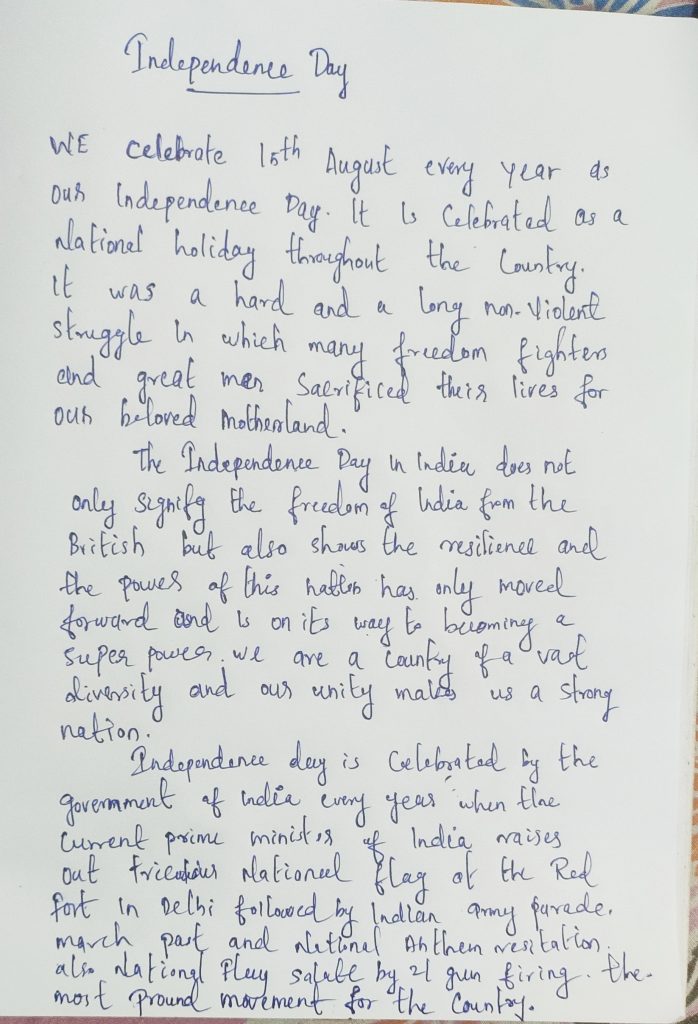 Independence Day
WE celebrate 15th August every year as
our Independence Day. It is Celebrated as a
National holiday throughout the Country.
it was a hard and a long non-Violent
struggle in which many freedom fighters
and great men Sacrificed their lives for
our beloved Motherland.
The Independence Day in India does not
only signify the freedom of India from the
British but also shows the resilience and
the power of this nation has only moved
forward and is on its way to becoming a
super power. we are a Country of a vast
diversity and our unity makes us a strong
nation.
Independence day is Celebrated by the
government of India every year when the
Current prime minister of India raises
out National flag at the Red
fort in Delhi followed by Indian army parade.
march past and National Anthem resitation.
also National Flag salute by 21 gun firing. the
most pround movement for the Country.